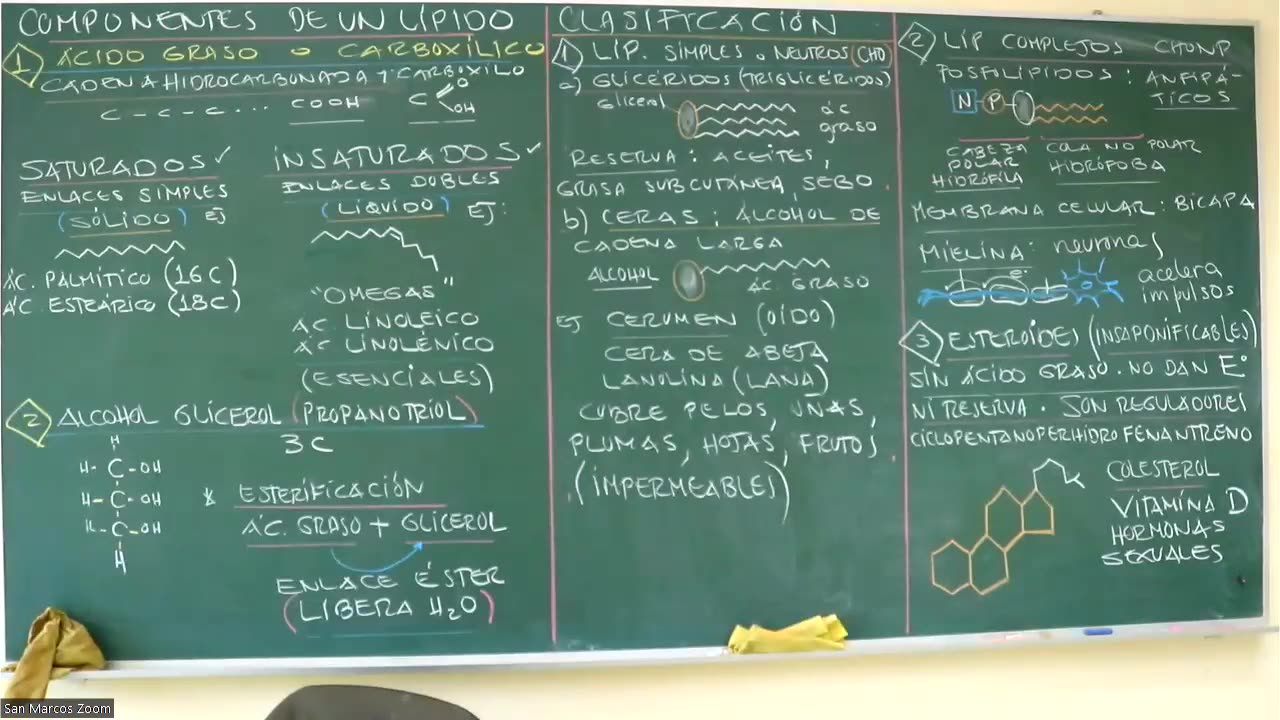 COMPONENTES DE UN LÍPIDO
1 ÁCIDO GRASO o CARBOXÍLICO
CADENA HIDROCARBONADA Y CARBOXILO
C - C - C ... COOH C O OH
SATURADOS ✓
ENLACES SIMPLES
(SÓLIDO) EJ
ÁC. PALMÍTICO (16C)
ÁC. ESTEÁRICO (18C)
INSATURADOS ✓
ENLACES DOBLES
(LÍQUIDO) EJ:
"OMEGAS"
ÁC. LINOLEICO
ÁC LINOLÉNICO
(ESENCIALES)
2 ALCOHOL GLICEROL (PROPANOTRIOL)
3C
H
H- C -OH
H- C -OH
H- C -OH
H
* ESTERIFICACIÓN
ÁC. GRASO + GLICEROL
ENLACE ÉSTER
(LIBERA H₂O)
CLASIFICACIÓN
1 LIP. SIMPLES o NEUTROS (CHO)
a) GLICÉRIDOS (TRIGLICÉRIDOS)
Glicerol
ác
graso
RESERVA: ACEITES,
GRASA SUBCUTÁNEA, SEBO.
b) CERAS: ALCOHOL DE
CADENA LARGA
ALCOHOL
ÁC. GRASO
EJ CERUMEN (OÍDO)
CERA DE ABEJA
LANOLINA (LANA)
CUBRE PELOS, UÑAS,
PLUMAS, HOJAS, FRUTOS
(IMPERMEABLES)
2 LIP COMPLEJOS CHONP
FOSFOLÍPIDOS: ANFIPÁ-
TICOS
N P
CABEZA
POLAR
HIDRÓFILA
COLA NO POLAR
HIDRÓFOBA
MEMBRANA CELULAR: BICAPA
MIELINA: neuronas
e-
acelera
impulsos
3 ESTEROIDES (INSAPONIFICABLES)
SIN ÁCIDO GRASO. NO DAN E°
NI RESERVA. SON REGULADORES
CICLOPENTANOPERHIDROFENANTRENO
COLESTEROL
VITAMINA D
HORMONAS
SEXUALES
San Marcos Zoom